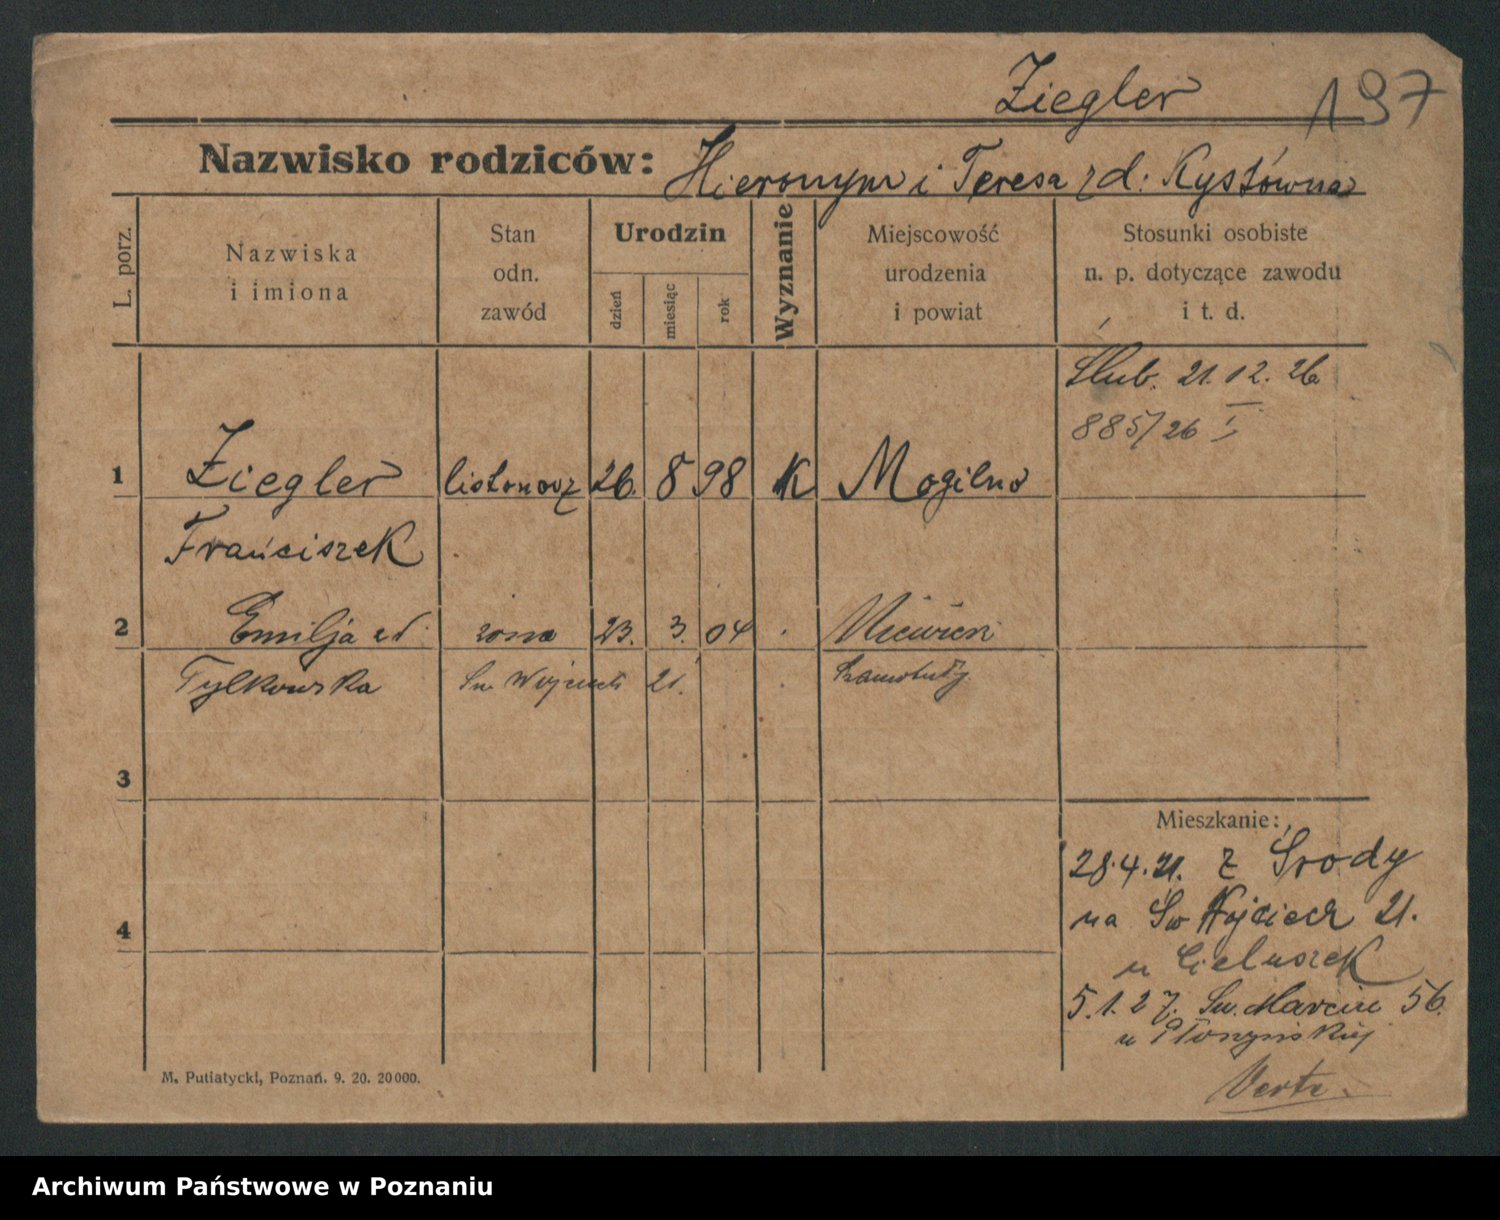 Ziegler
197
Nazwisko rodziców: Hieronym i Teresa zd. Kystówna
L. porz.
Nazwiska
i imiona
Stan
odn.
zawód
Urodzin
dzień
miesiąc
rok
Wyznanie
Miejscowość
urodzenia
i powiat
Stosunki osobiste
n. p. dotyczące zawodu
i t. d.
Ślub. 21.12.26
885/26 I
1 Ziegler listonosz 26. 8 98 K Mogilno
Franciszek
2 Emilja zd. żona 23. 3. 04
Tylkowska Św Wojciech 21. Szamotuły
3
4
Mieszkanie:
28.4.21. z Środy
na Św Wojciech 21.
u Cieluszek
5.1.27. Św. Marcin 56.
u
Verte
M. Putiatycki, Poznań. 9. 20. 20000.
Archiwum Państwowe w Poznaniu